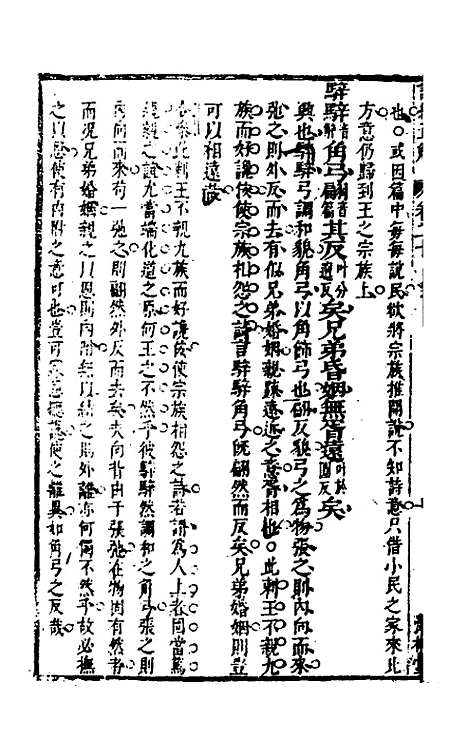 也○或因篇中每每說民欲將宗族推開說不知詩意只借小民之家來比
方意仍歸到王之宗族上
騂騂角弓翩其反矣兄弟昏姻無胥遠矣
興也騂騂弓調和貌角弓以角飾弓也翩反貌弓之爲物張之則內向而來
弛之則外反而去有似兄弟婚姻親疎遠近之意胥相也○此刺王不親九
族而好讒佞使宗族相怨之詩言騂騂角弓既翩然而反矣兄弟婚姻則豈
可以相遠哉
此刺王不親九族而好讒佞使宗族相怨之詩若謂爲人上者固當篤
親親之誼尤當端化道之原何王之不然乎彼騂騂然調和之角弓張之則
內向而來苟一弛之則翩然外反而去矣夫向背由于張弛在物固有然者
而況兄弟婚姻親之以恩則內附無以結之則外離亦何獨不然乎故必撫
之以恩使有內附之意可也豈可使之離異如角弓之反哉